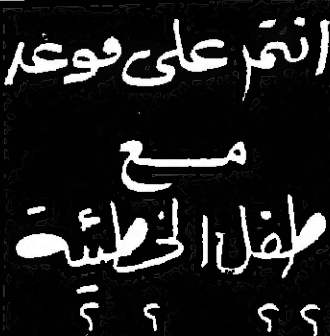 انتم على موعد
مع
طفل الخطيئة
؟ ؟ ؟ ؟